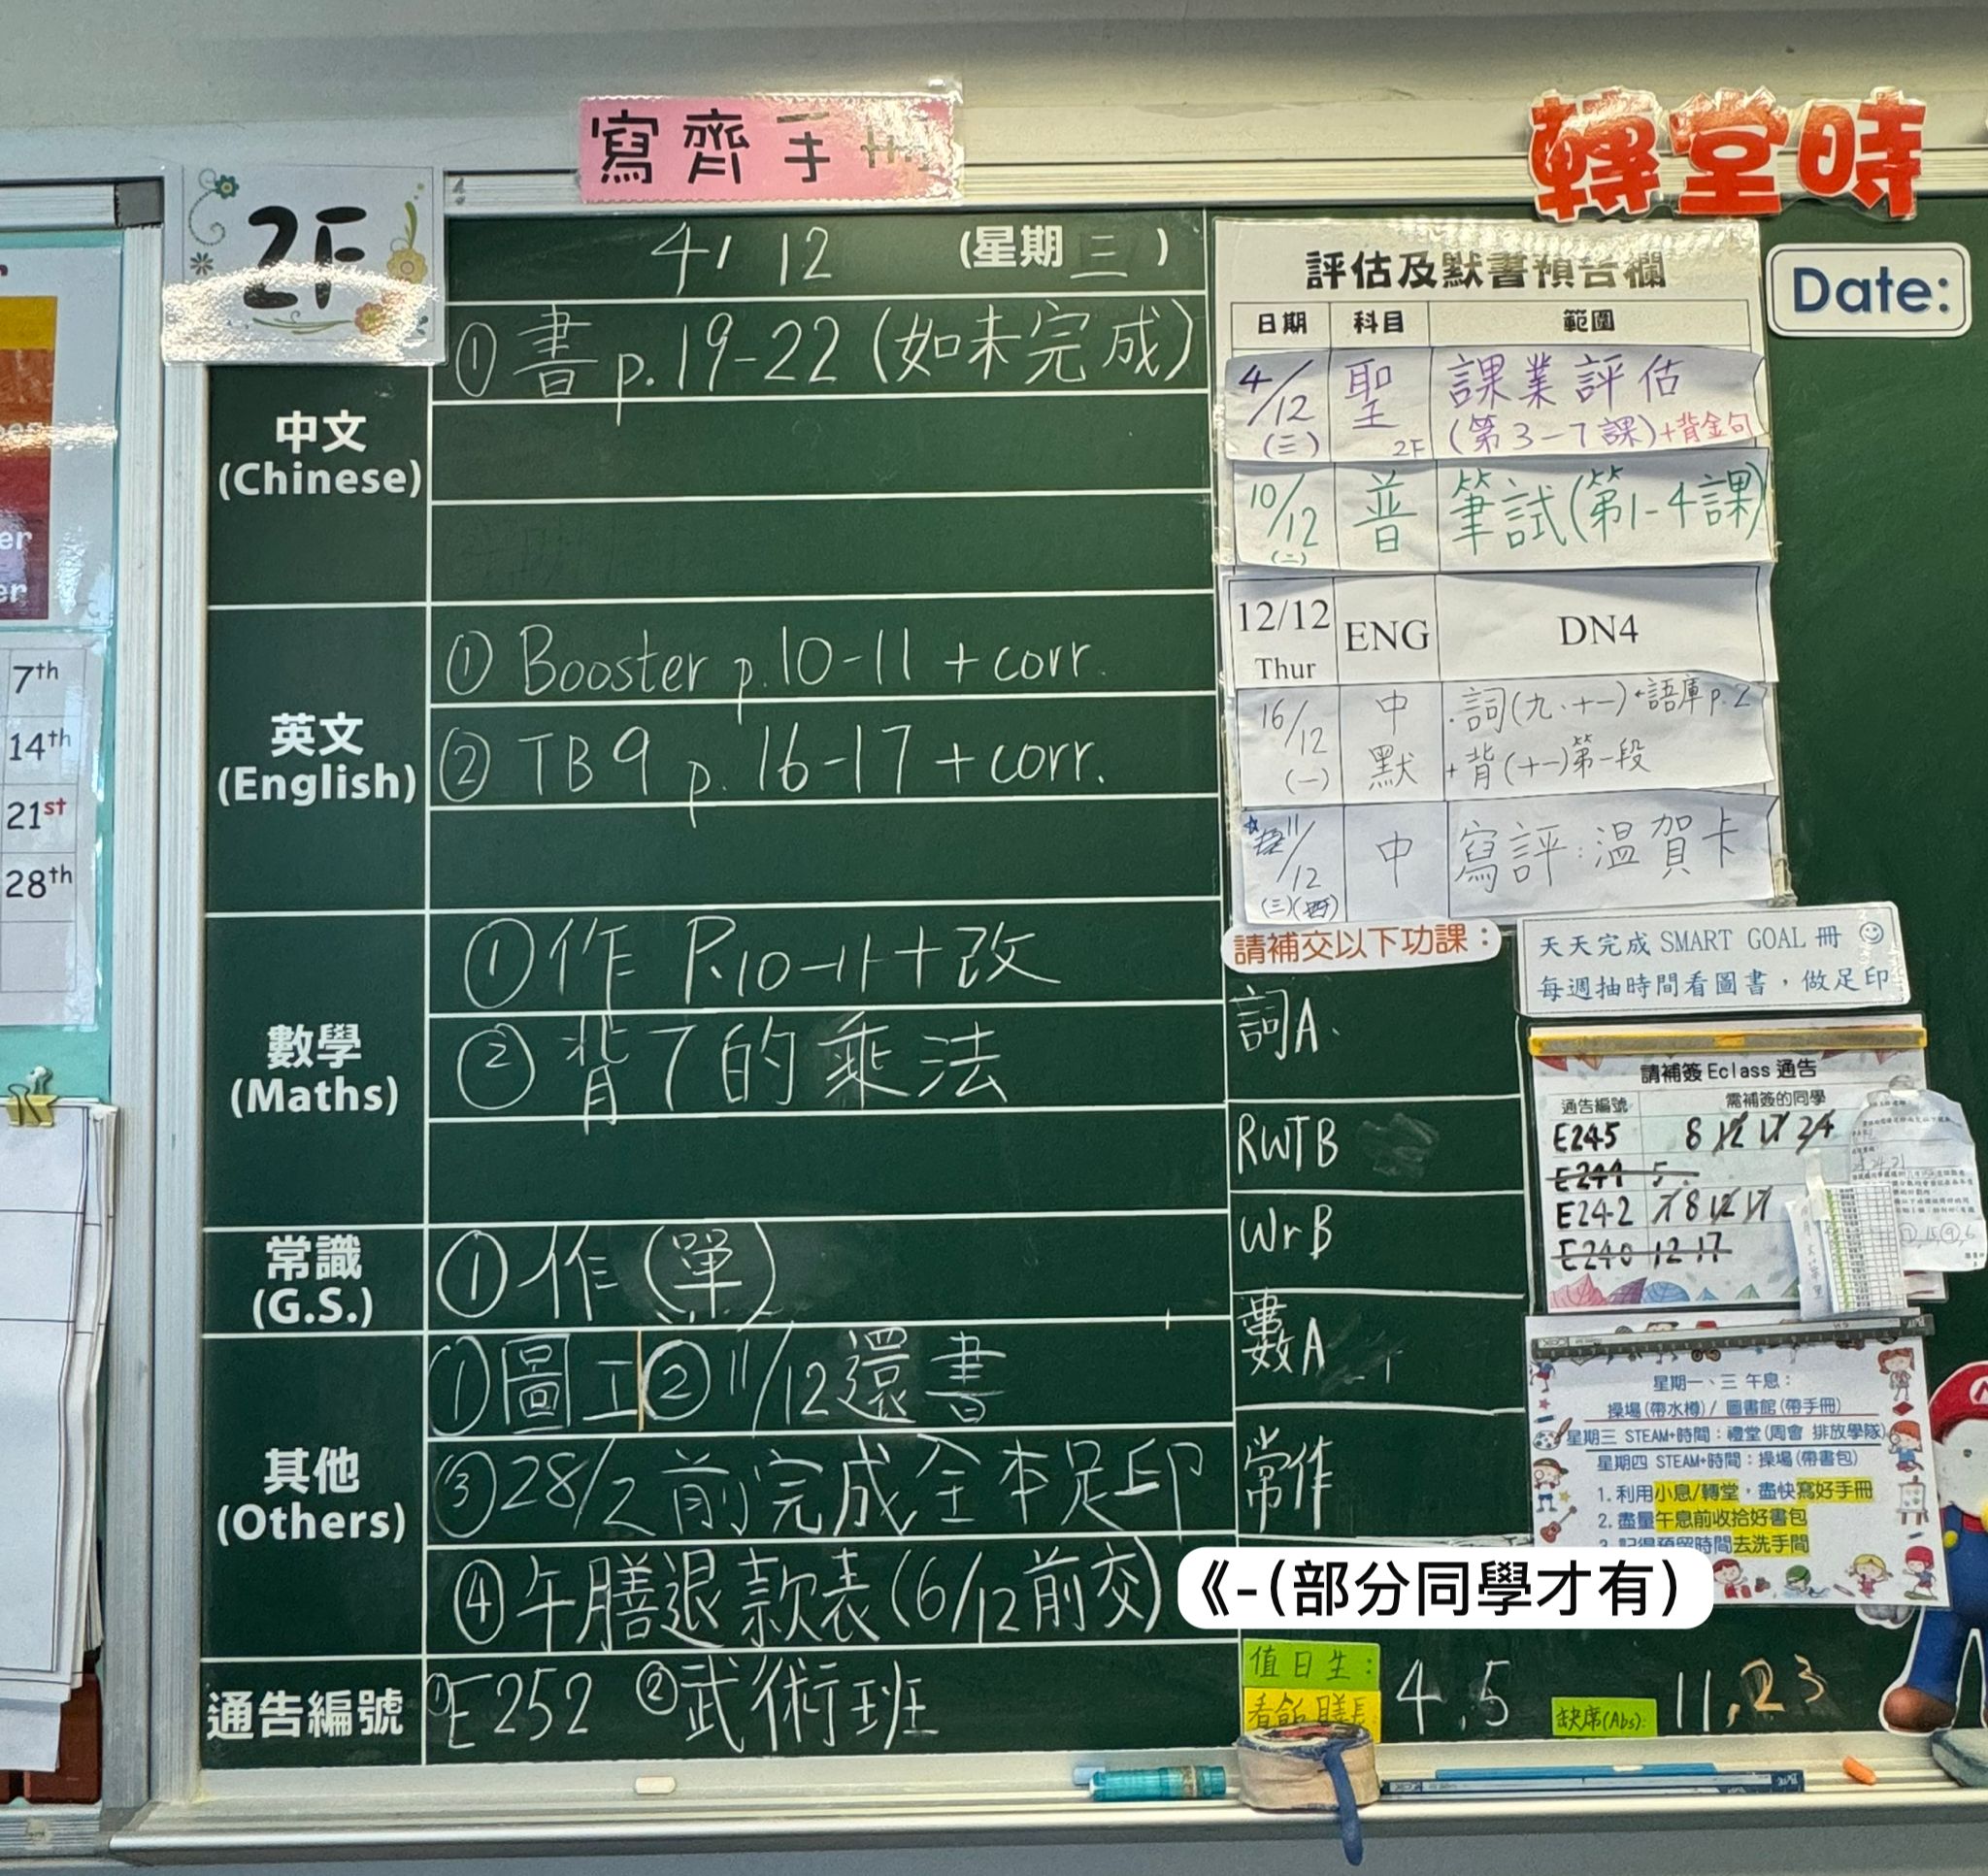 寫齊手冊
轉堂時
2F
4/ 12 (星期三)
Date:
中文
(Chinese)
① 書 p.19-22 (如未完成)
英文
(English)
① Booster p.10-11 + corr.
② TB9 p. 16-17 + corr.
數學
(Maths)
① 作 P.10-11+改
② 背7的乘法
常識
(G.S.)
① 作 (單)
其他
(Others)
① 圖工 ② 11/12 還書
③ 28/2 前完成全本足印
④ 午膳退款表 (6/12前交)
《-(部分同學才有)
通告編號
① E252 ② 武術班
評估及默書預告欄
日期 科目 範圍
4/12 (三) 聖 2F 課業評估
(第3-7課)+背金句
10/12 (二) 普 筆試(第1-4課)
12/12 Thur ENG DN4
16/12 (一) 中默 ·詞(九、十一)·語庫p.2
+背(十一)第一段
11/12 (三) 中 寫評:溫賀卡
請補交以下功課:
詞A.
RWTB
WrB
數A
常作
天天完成 SMART GOAL 冊 ☺
每週抽時間看圖書,做足印
請補簽 Eclass 通告
通告編號 需補簽的同學
E245 8 12 17 24
E244 5
E242 7 8 12 17
E240 12 17
星期一、三 午息:
操場(帶水樽)/ 圖書館(帶手冊)
星期三 STEAM+時間:禮堂(周會 排放學隊)
星期四 STEAM+時間:操場(帶書包)
1. 利用小息/轉堂,盡快寫好手冊
2. 盡量午息前收拾好書包
3. 記得預留時間去洗手間
值日生:
看飯膳長: 4, 5
缺席(Abs): 11, 23
7th
14th
21st
28th
er
er